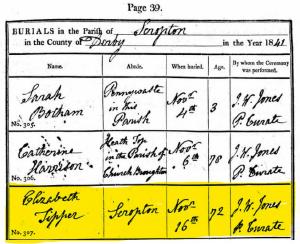 Page 39.
BURIALS in the Parish of Scropton
in the County of Derby in the Year 1841
Name. Abode. When buried. Age. By whom the Ceremony was performed.
Sarah Botham No. 305. Pennywaste in this Parish Novr. 4th 3 J. W. Jones P. Curate
Catherine Harrison No. 306. Heath Top in the Parish of Church Broughton Novr. 6th 70 J. W. Jones P. Curate
Elizabeth Tipper No. 307. Scropton Novr. 16th 72 J. W. Jones P. Curate